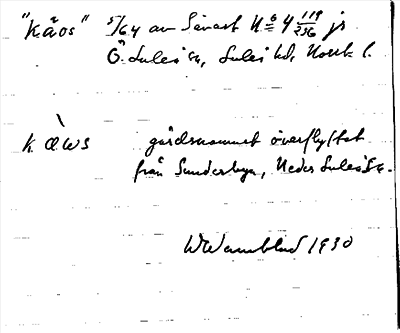 "Kåos" 5/64 av Sävast No 4 119/256 js
Ö. Luleå sn, Luleå kd, Norrb. l.
kàws gårdsnamnet överflyttat
från Sunderbyn, Neder Luleå sn.
W Wennblad 1930